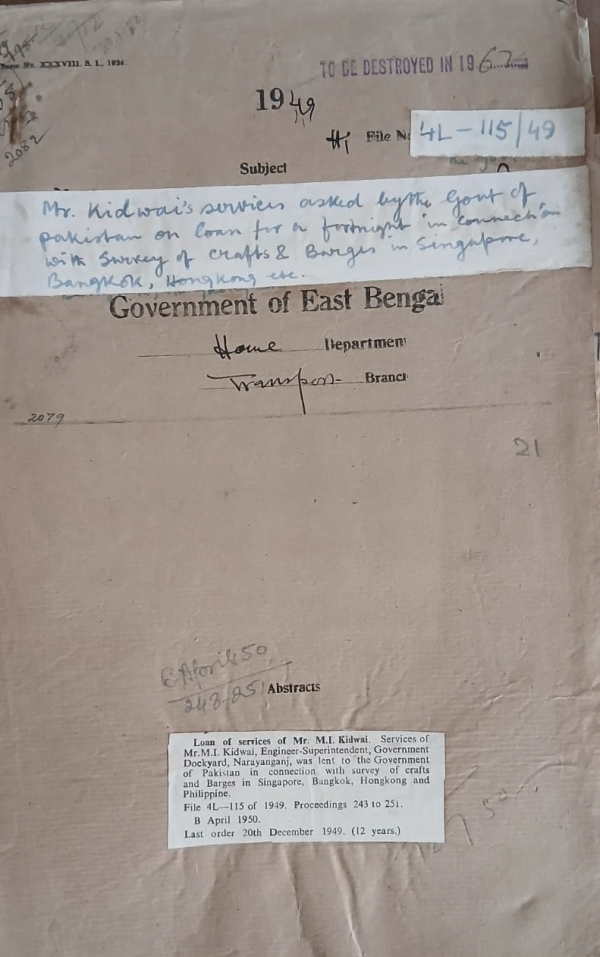 Form No. XXXVIII. S. 1., 1924.
TO BE DESTROYED IN 1962
1949
File No
4L-115/49
Subject
Mr. Kidwai's services asked by the Govt of
pakistan on loan for a fortnight in connection
with Survey of crafts & Barges in Singapore,
Bangkok, Hongkong etc.
Government of East Bengal
Home Departmen
Transport Branch
2079
2082
21
B April 50
243-251
Abstracts
Loan of services of Mr. M.I. Kidwai. Services of
Mr.M.I. Kidwai, Engineer-Superintendent, Government
Dockyard, Narayanganj, was lent to the Government
of Pakistan in connection with survey of crafts
and Barges in Singapore, Bangkok, Hongkong and
Philippine.
File 4L—115 of 1949. Proceedings 243 to 251.
B April 1950.
Last order 20th December 1949. (12 years.)